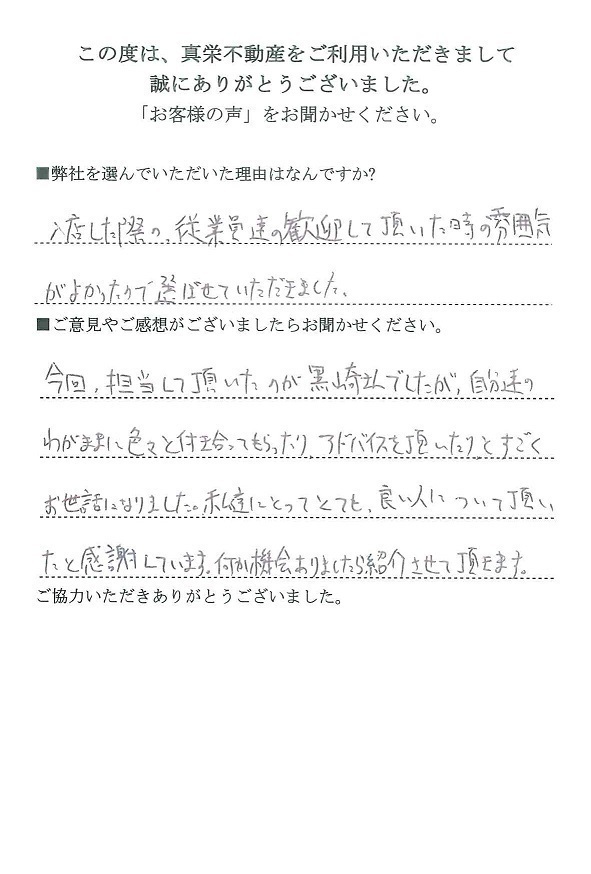 この度は、真栄不動産をご利用いただきまして
誠にありがとうございました。
「お客様の声」をお聞かせください。
■弊社を選んでいただいた理由はなんですか?
入店した際の、従業員達の歓迎して頂いた時の雰囲気
がよかったので選ばせていただきました。
■ご意見やご感想がございましたらお聞かせください。
今回、担当して頂いたのが黒崎さんでしたが、自分達の
わがままに色々と付き合ってもらったり、アドバイスを頂いたり、とすごく
お世話になりました。私達にとってとても、良い人について頂い
たと感謝しています。何か機会ありましたら紹介させて頂きます。
ご協力いただきありがとうございました。